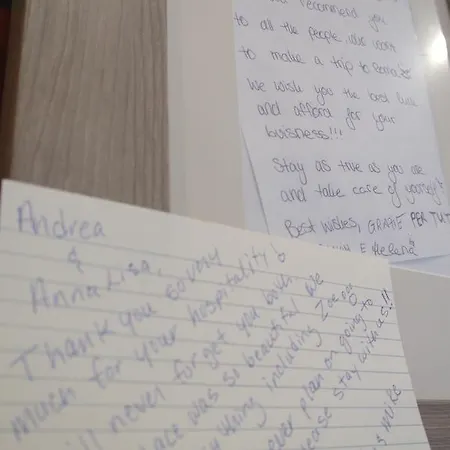 recommend you
to all the people who want
to make a trip to
We wish you the best
and afford for your
buisness!!!
Stay as true as you are
and take care of yourself
Best wishes, GRAZIE PER TUT
& Helena
Andrea
&
Anna Lisa,
Thank you so very
much for your hospitality &
never forget you both
place was so beautiful
including
ever plan on going to
please stay with us!!